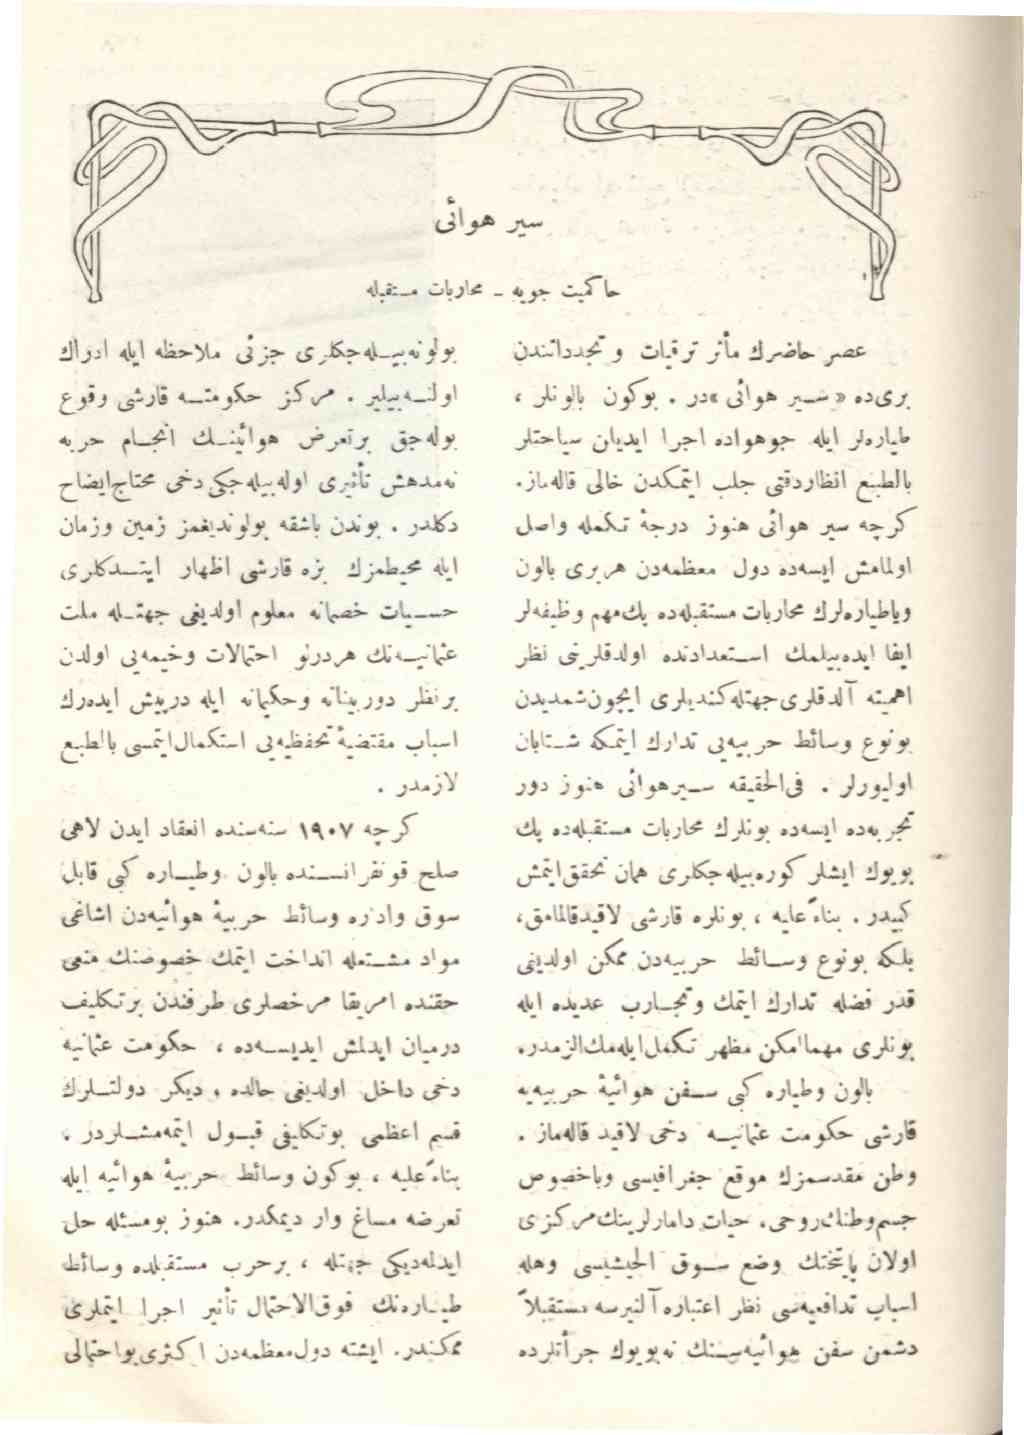 سیر هوائی
حاکمیت جویه ـ محاربات مستقبله
عصر حاضرك مآثر ترقیات و تجدداتندن
بری‌ده « سیر هوائی »در . بوکون بالونلر ،
طیاره‌لر ایله جوهواده اجرا ایدیلن سیاحتلر
بالطبع انظاردقتی جلب ایتمکدن خالی قاله‌ماز.
کرچه سیر هوائی هنوز درجهٔ تکمله واصل
اولمامش ایسه‌ده دول معظمه‌دن هربری بالون
ویاطیاره‌لرك محاربات مستقبله‌ده پك‌مهم وظیفه‌لر
ایفا ایده‌بیلمك استعدادنده اولدقلرینی نظر
اهمیته آلدقلری‌جهتله‌کندیلری ایچون‌شمدیدن
بونوع وسائط حربیه‌یی تدارك ایتمکه شتابان
اولیورلر . فی‌الحقیقه سیرهوائی هنوز دور
تجربه‌ده ایسه‌ده بونلرك محاربات مستقبله‌ده پك
بویوك ایشلر کوره‌بیله‌جکلری همان تحقق‌ایتمش
کبیدر . بناءً علیه ، بونلره قارشی لاقیدقالمامق،
بلکه بونوع وسائط حربیه‌دن ممکن اولدیغی
قدر فضله تدارك ایتمك وتجارب عدیده ایله
بونلری مهماامکن مظهر تکمل‌ایله‌مك‌الزمدر.
بالون وطیاره کبی سفن هوائیهٔ حربیه‌یه
قارشی حکومت عثمانیه دخی لاقید قاله‌ماز .
وطن مقدسمزك موقع جغرافیسی وباخصوص
جسم‌وطنك‌روحی، حیات دامارلرینك‌مرکزی
اولان پایتختك وضع سوق الجیشیسی وهله
اسباب تدافعیه‌سی نظر اعتباره آلنیرسه مستقبلاً
دشمن سفن هوائیه‌سنك نه‌بویوك جرأتلرده
بولونه‌بیله‌جکلری جزئی ملاحظه ایله ادراك
اولنه‌بیلیر . مرکز حکومته قارشی وقوع
بوله‌جق برتعرض هوائینك انجام حربه
نه‌مدهش تأثیری اوله‌بیله‌جکی‌دخی محتاج‌ایضاح
دکلدر . بوندن باشقه بولوندیغمز زمین وزمان
ایله محیطمزك بزه قارشی اظهار ایتدکلری
حسیات خصمانه معلوم اولدیغی جهتله ملت
عثمانیه‌نك هردرلو احتمالات وخیمه‌یی اولدن
برنظر دوربینانه وحکیمانه ایله درپیش ایده‌رك
اسباب مقتضیهٔ تحفظیه‌یی استکمال‌ایتمسی بالطبع
لازمدر .
کرچه ۱۹۰۷ سنه‌سنده انعقاد ایدن لاهی
صلح قونفرانسنده بالون وطیاره کبی قابل
سوق واداره وسائط حربیهٔ هوائیه‌دن اشاغی
مواد مشتعله انداخت ایتمك خصوصنك منعی
حقنده امریقا مرخصلری طرفندن برتکلیف
درمیان ایدلمش ایدیسه‌ده ، حکومت عثمانیه
دخی داخل اولدیغی حالده ، دیکر دولتلرك
قسم اعظمی بوتکلیفی قبول ایتمه‌مشلردر .
بناءً علیه ، بوکون وسائط حربیهٔ هوائیه ایله
تعرضه مساغ وار دیمکدر. هنوز بومسئله حل
ایدلمه‌دیکی جهتله ، برحرب مستقبلده وسائط
طیاره‌نك فوق‌الاحتمال تأثیر اجرا ایتملری
ممکندر. ایشته دول‌معظمه‌دن اکثری‌بواحتمالی